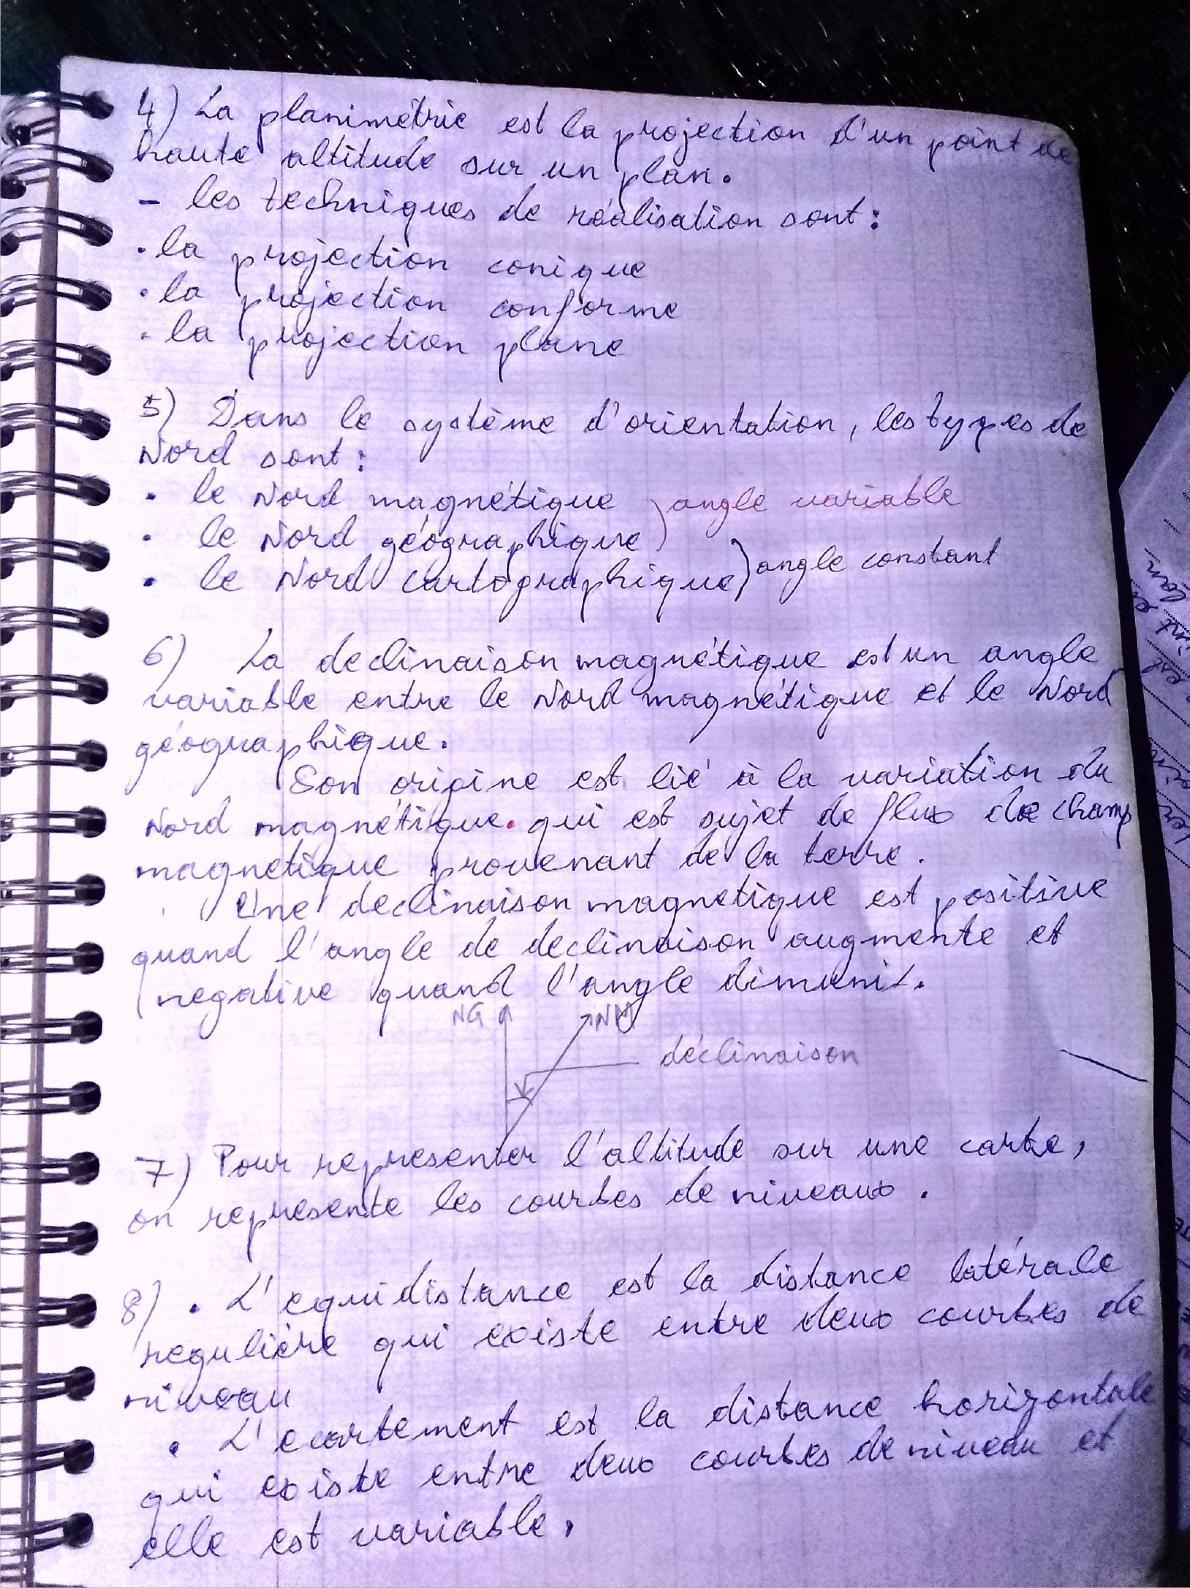 4) La planimétrie est la projection d'un point de
haute altitude sur un plan.
- les techniques de réalisation sont :
. la projection conique
. la projection conforme
. la projection plane
5) Dans le système d'orientation, les types de
Nord sont :
. le Nord magnétique ) angle variable
. le Nord géographique
. le Nord cartographique ) angle constant
6) La declinaison magnétique est un angle
variable entre le Nord magnétique et le Nord
géographique.
Son origine est lié à la variation du
Nord magnétique. qui est sujet de flux de champ
magnetique provenant de la terre.
Une declinaison magnetique est positive
quand l'angle de declinaison augmente et
negative quand l'angle dimunit.
NG NM
déclinaison
7) Pour representer l'altitude sur une carte,
on represente les courbes de niveaux.
8) . L'equidistance est la distance latérale
regulière qui existe entre deux courbes de
niveau
. L'ecartement est la distance horizontale
qui existe entre deux courbes de niveau et
elle est variable.